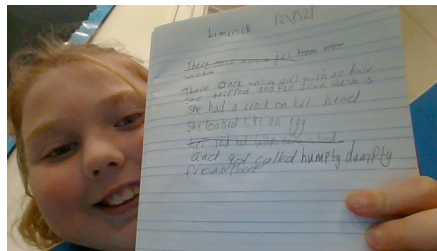 Limerick 12/1/21
There once was a girl from
There once was a girl with no hair
She tripped and fell down
She had a crack on her head
She looked like an egg
her
and got called humpty dumpty